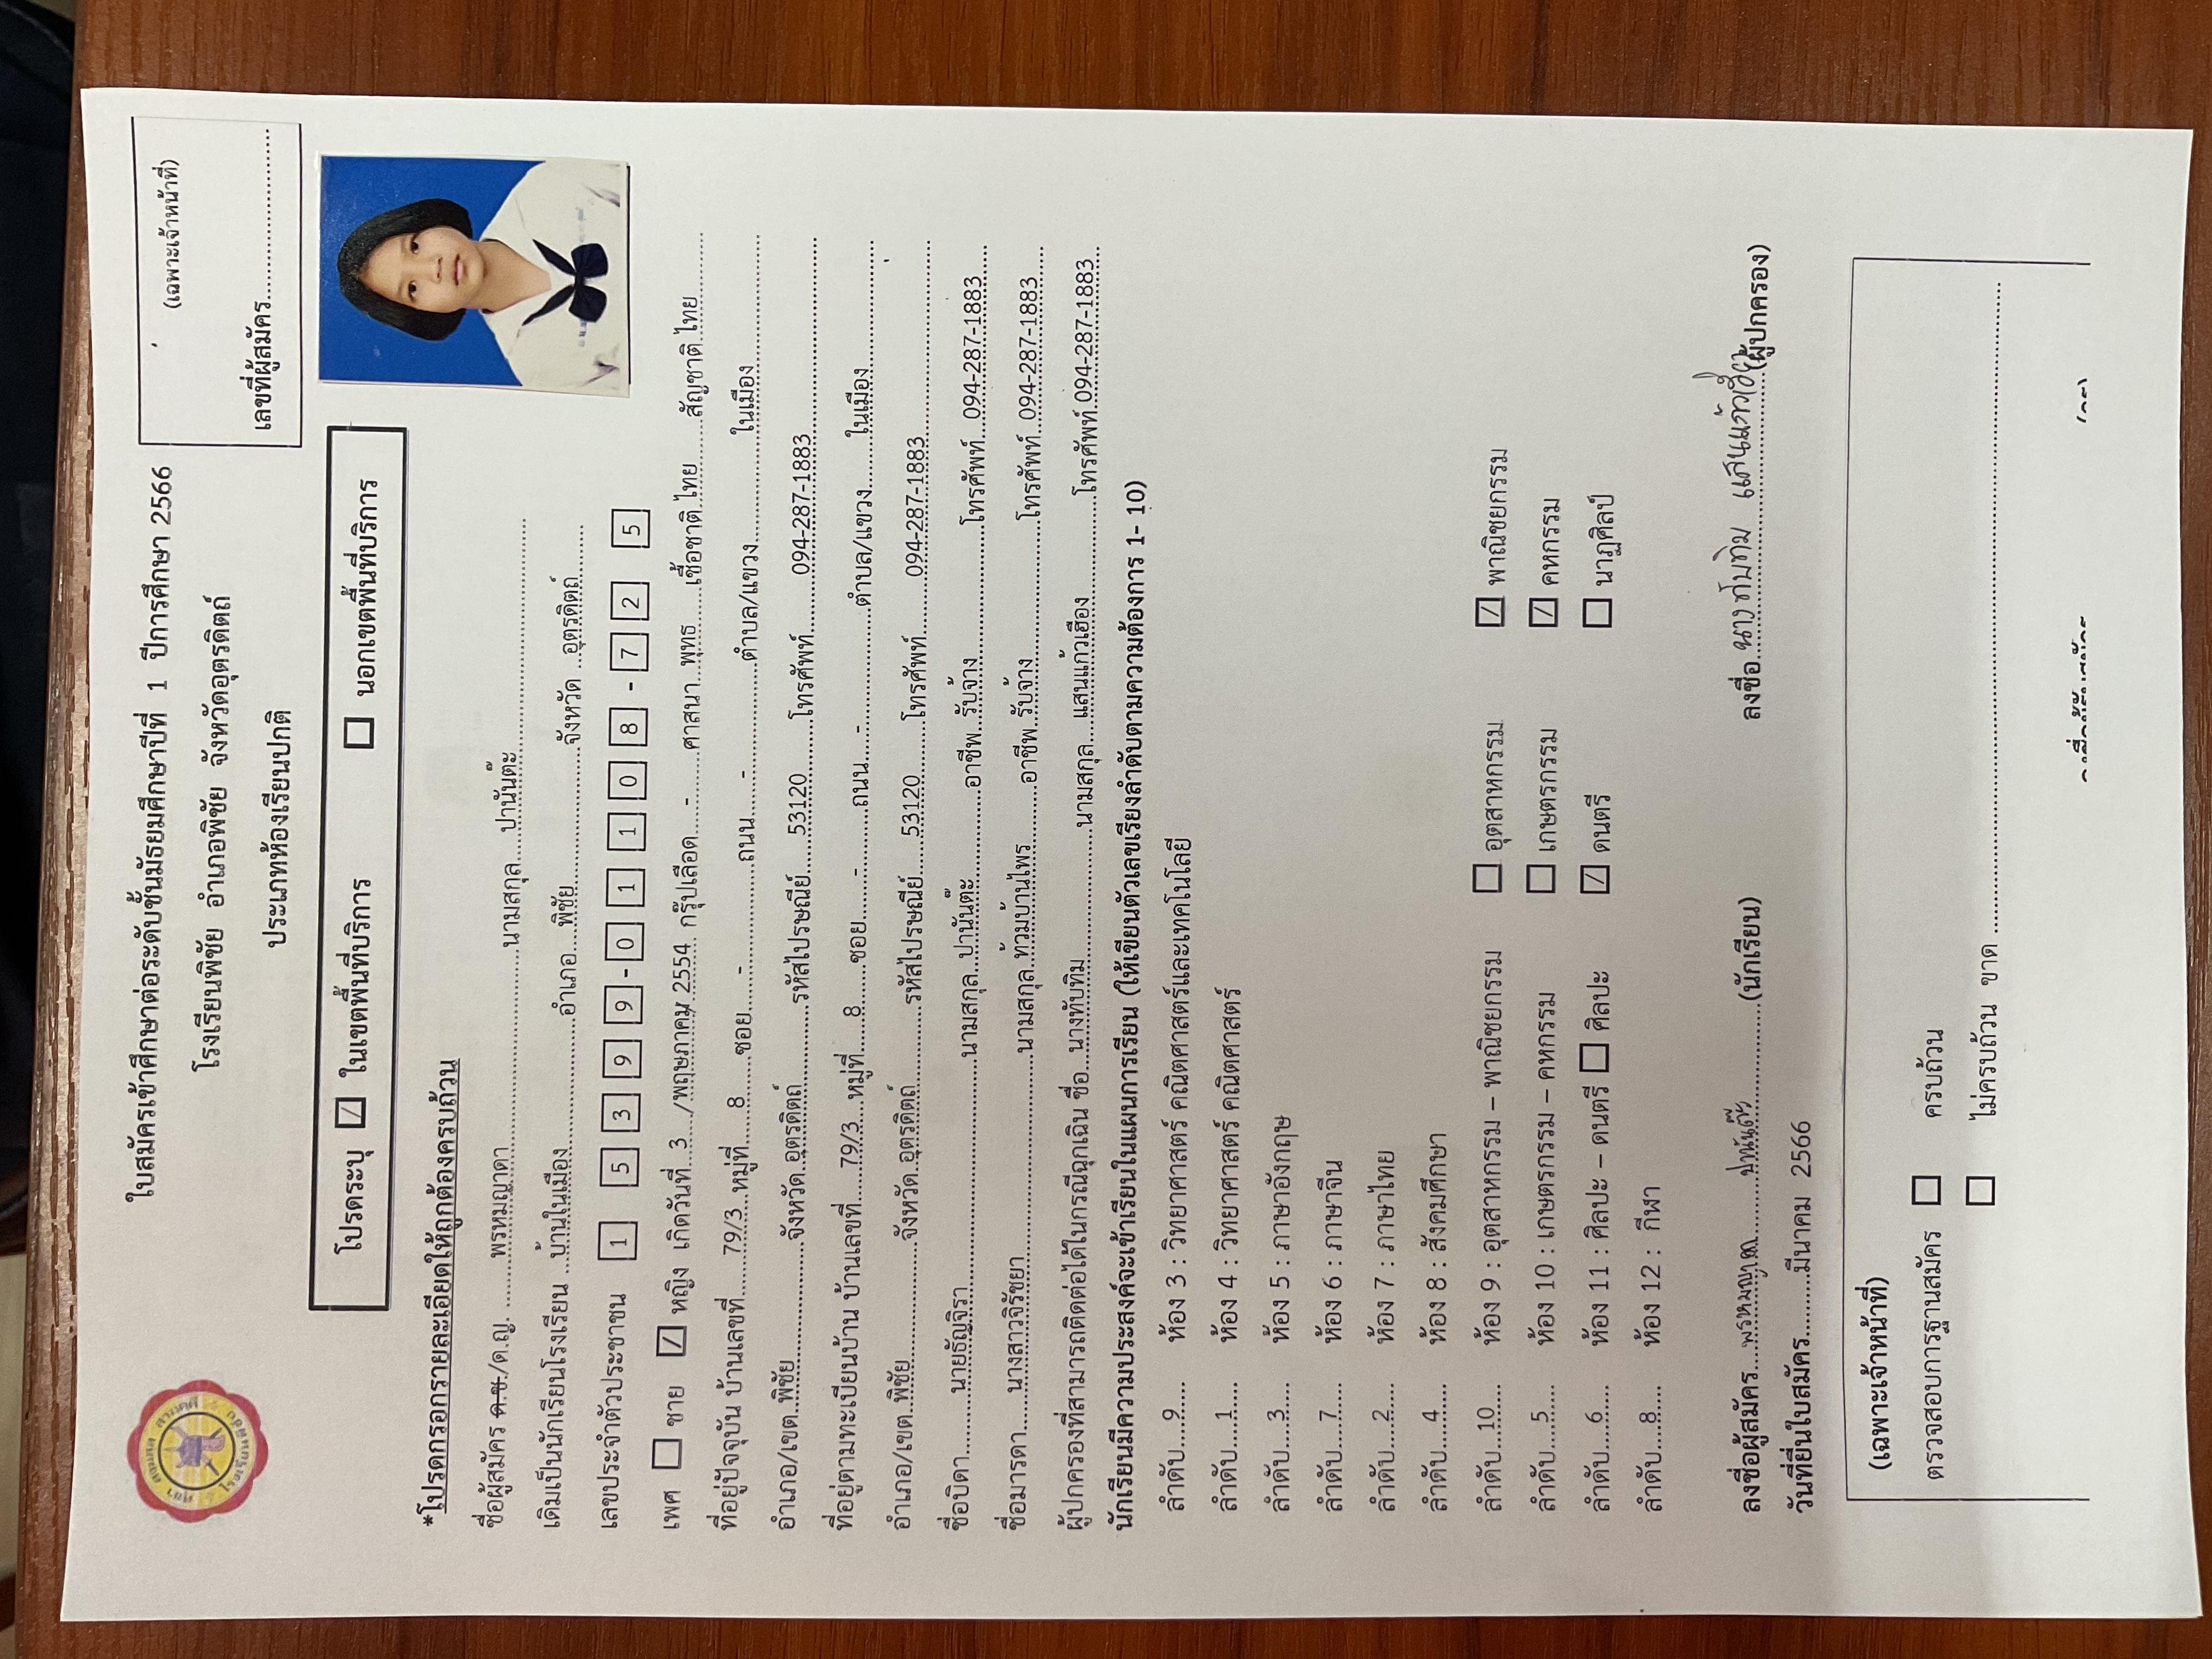 (เฉพาะเจ้าหน้าที่)
เลขที่ผู้สมัคร..............................
ใบสมัครเข้าศึกษาต่อระดับชั้นมัธยมศึกษาปีที่ 1 ปีการศึกษา 2566
โรงเรียนพิชัย อำเภอพิชัย จังหวัดอุตรดิตถ์
ประเภทห้องเรียนปกติ
โปรดระบุ ☑ ในเขตพื้นที่บริการ ☐ นอกเขตพื้นที่บริการ
*โปรดกรอกรายละเอียดให้ถูกต้องครบถ้วน
ชื่อผู้สมัคร ด.ช./ด.ญ. ........พรหมญาดา..............................นามสกุล....ปานันต๊ะ..............................
เดิมเป็นนักเรียนโรงเรียน ...บ้านในเมือง....................อำเภอ....พิชัย....................จังหวัด ...อุตรดิตถ์..........
เลขประจำตัวประชาชน 1 5 3 9 9 - 0 1 1 0 8 - 7 2 5
เพศ ☐ ชาย ☑ หญิง เกิดวันที่...3..../พฤษภาคม/ 2554 กรุ๊ปเลือด....-.......ศาสนา...พุทธ......เชื้อชาติ.ไทย.......สัญชาติ.ไทย..........
ที่อยู่ปัจจุบัน บ้านเลขที่......79/3...หมู่ที่......8......ซอย......-..............ถนน......-..............ตำบล/แขวง..............ในเมือง....................
อำเภอ/เขต..พิชัย....................จังหวัด..อุตรดิตถ์..............รหัสไปรษณีย์......53120..........โทรศัพท์..........094-287-1883..............................
ที่อยู่ตามทะเบียนบ้าน บ้านเลขที่......79/3...หมู่ที่......8......ซอย......-......ถนน......-..............ตำบล/แขวง........ในเมือง....................
อำเภอ/เขต..พิชัย....................จังหวัด..อุตรดิตถ์..............รหัสไปรษณีย์......53120..........โทรศัพท์..........094-287-1883..............................
ชื่อบิดา..........นายธัญจิรา..............................นามสกุล..ปานันต๊ะ..............อาชีพ..รับจ้าง..............โทรศัพท์...094-287-1883......
ชื่อมารดา......นางสาวจิรัชยา..............................นามสกุล..ท้วมบ้านไพร..........อาชีพ..รับจ้าง..............โทรศัพท์...094-287-1883......
ผู้ปกครองที่สามารถติดต่อได้ในกรณีฉุกเฉิน ชื่อ...นางทับทิม....................นามสกุล....แสนแก้วเฮือง..............โทรศัพท์.094-287-1883..
นักเรียนมีความประสงค์จะเข้าเรียนในแผนการเรียน (ให้เขียนตัวเลขเรียงลำดับตามความต้องการ 1- 10)
ลำดับ....9..... ห้อง 3 : วิทยาศาสตร์ คณิตศาสตร์และเทคโนโลยี
ลำดับ....1..... ห้อง 4 : วิทยาศาสตร์ คณิตศาสตร์
ลำดับ....3..... ห้อง 5 : ภาษาอังกฤษ
ลำดับ....7..... ห้อง 6 : ภาษาจีน
ลำดับ....2..... ห้อง 7 : ภาษาไทย
ลำดับ....4..... ห้อง 8 : สังคมศึกษา
ลำดับ...10.... ห้อง 9 : อุตสาหกรรม – พาณิชยกรรม ☐ อุตสาหกรรม ☑ พาณิชยกรรม
ลำดับ....5..... ห้อง 10 : เกษตรกรรม – คหกรรม ☐ เกษตรกรรม ☑ คหกรรม
ลำดับ....6..... ห้อง 11 : ศิลปะ – ดนตรี ☐ ศิลปะ ☑ ดนตรี ☐ นาฏศิลป์
ลำดับ....8..... ห้อง 12 : กีฬา
ลงชื่อผู้สมัคร....พรหมญาดา..........ปานันต๊ะ....................(นักเรียน) ลงชื่อ..นางทับทิม แสนแก้วเฮือง.....(ผู้ปกครอง)
วันที่ยื่นใบสมัคร..........มีนาคม 2566
(เฉพาะเจ้าหน้าที่)
ตรวจสอบการฐานสมัคร ☐ ครบถ้วน
☐ ไม่ครบถ้วน ขาด ............................................................